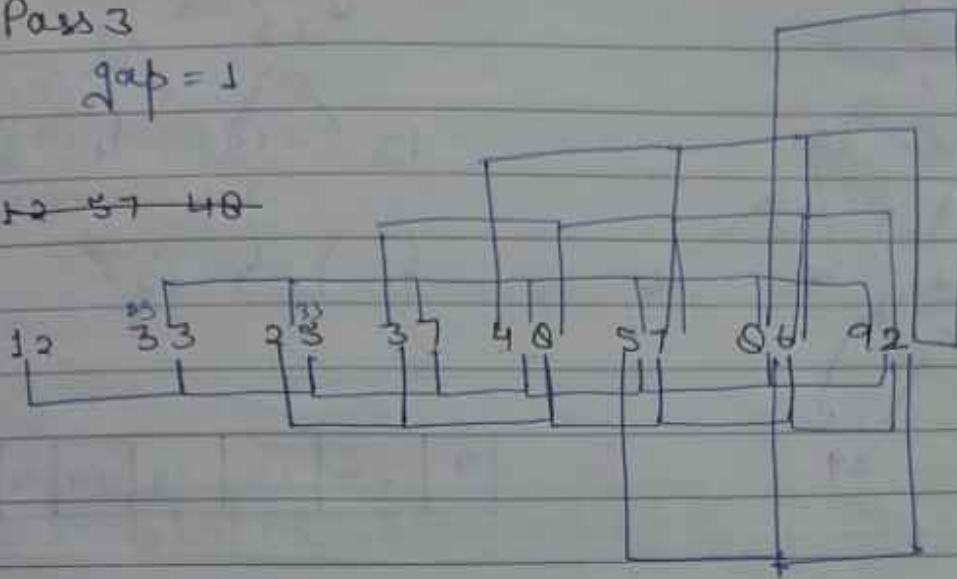 Pass 3
gap = 1
12 57 48
33 33
12 33 25 37 48 57 86 92